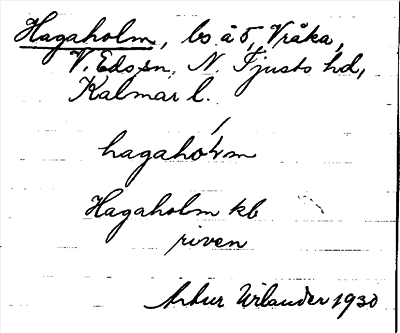 Hagaholm, bs å 5, Vråka,
V. Eds sn, N. Tjusts hd,
Kalmar l.
hagahólm
Hagaholm kb
riven
Arthur Wilander 1930